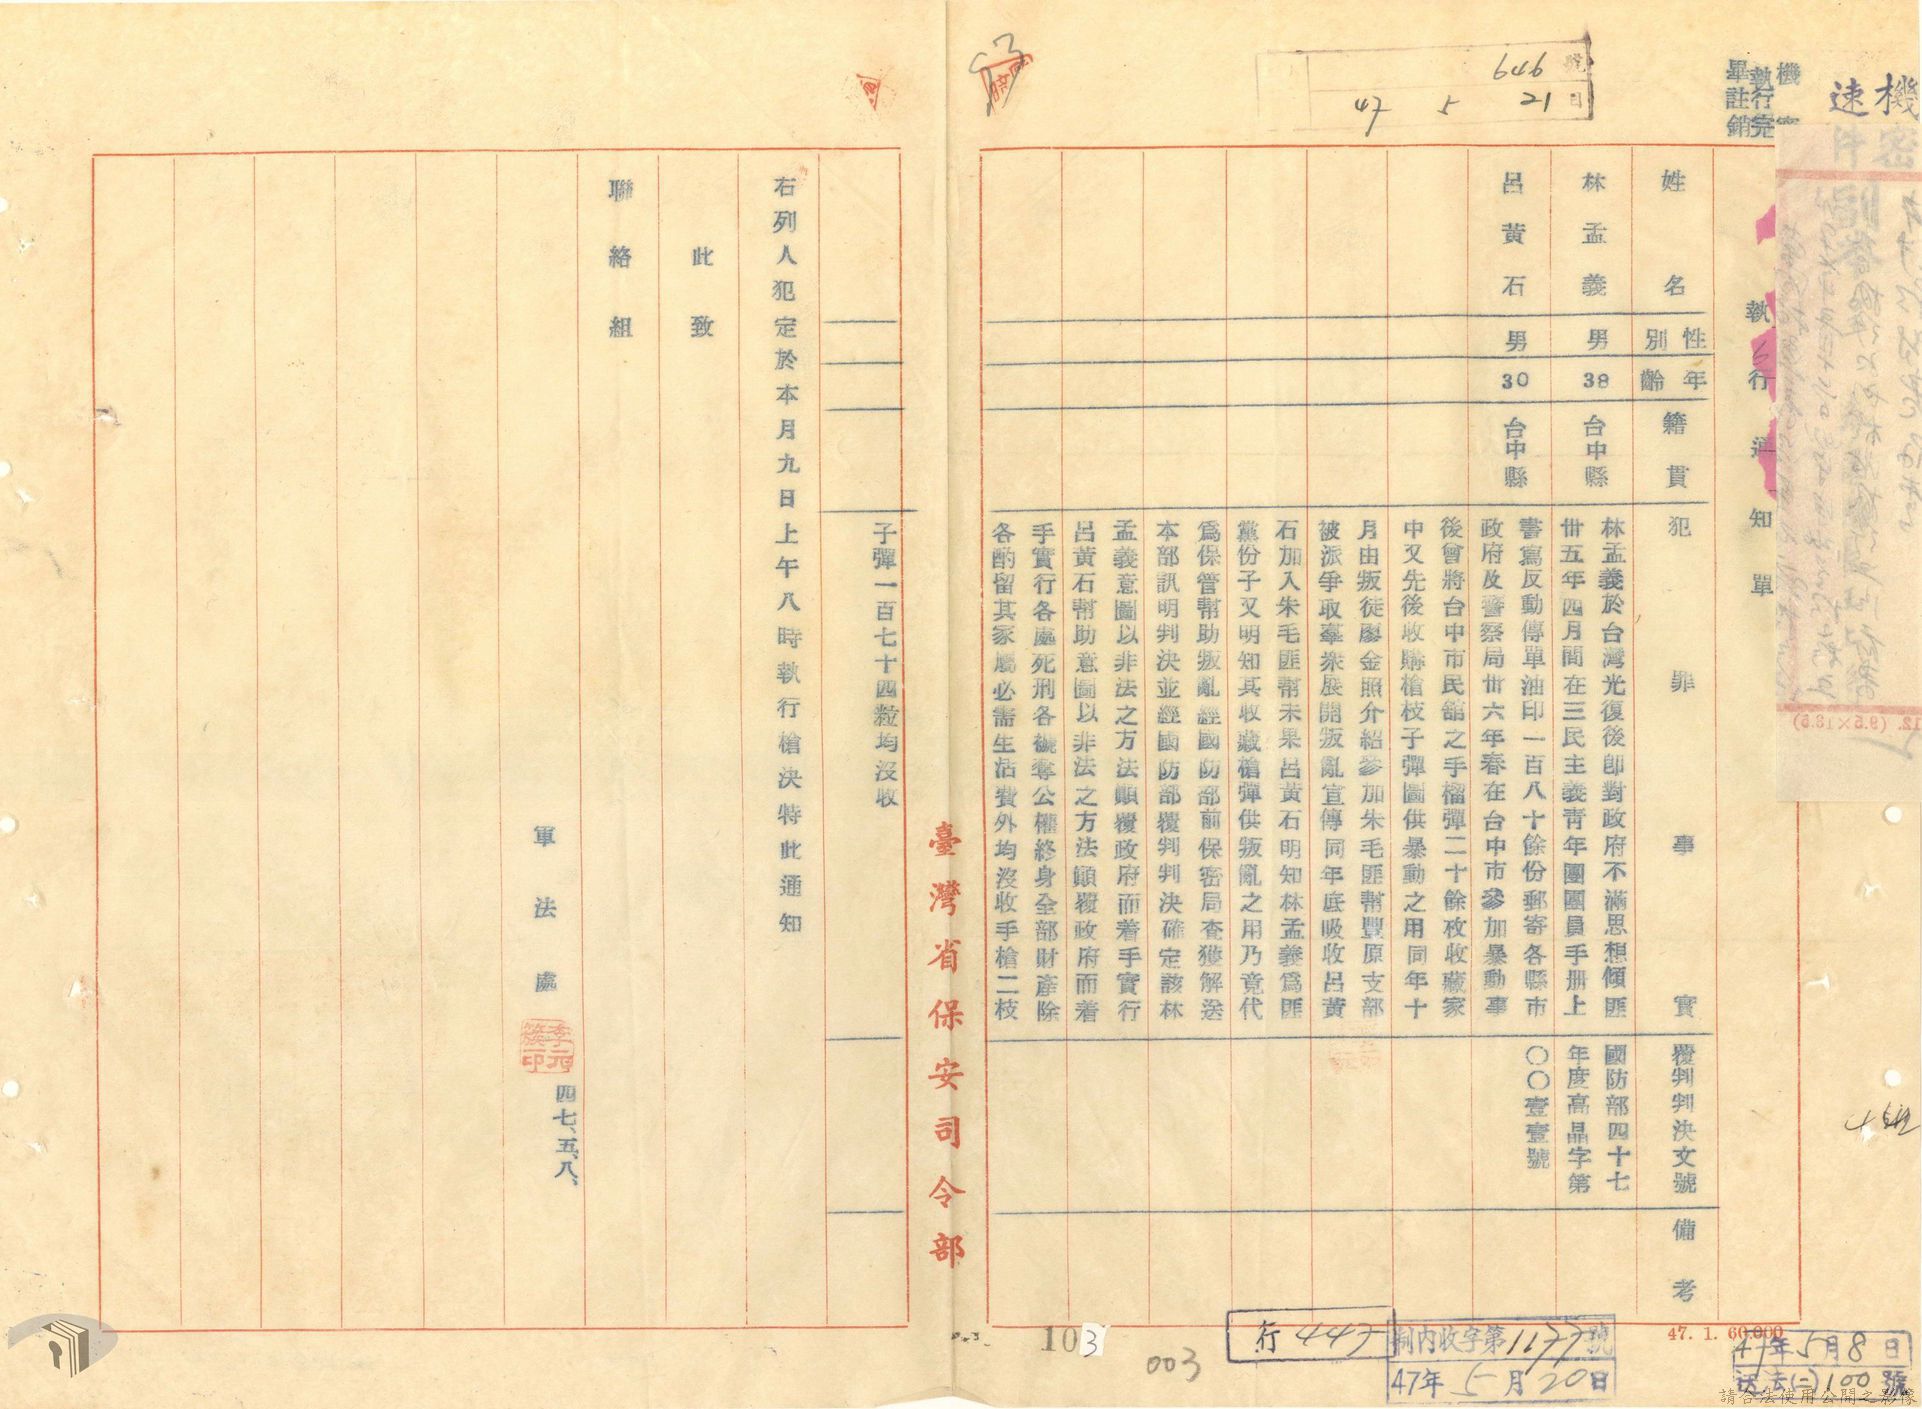 機速
密件
機密
執行完
畢註銷
號 646
47 5 21 日
執行通知單
姓名
性別
年齡
籍貫
犯罪事實
覆判判決文號
備考
林孟義
男
38
台中縣
呂黃石
男
30
台中縣
林孟義於台灣光復後即對政府不滿思想傾匪
卅五年四月間在三民主義青年團團員手册上
書寫反動傳單油印一百八十餘份郵寄各縣市
政府及警察局卅六年春在台中市參加暴動事
後曾將台中市民舘之手榴彈二十餘枚收藏家
中又先後收購槍枝子彈圖供暴動之用同年十
月由叛徒廖金照介紹參加朱毛匪幫豐原支部
被派爭取羣衆展開叛亂宣傳同年底吸收呂黃
石加入朱毛匪幫未果呂黃石明知林孟義爲匪
黨份子又明知其收藏槍彈供叛亂之用乃竟代
爲保管幫助叛亂經國防部前保密局查獲解送
本部訊明判決並經國防部覆判判決確定該林
孟義意圖以非法之方法顚覆政府而着手實行
呂黃石幫助意圖以非法之方法顚覆政府而着
手實行各處死刑各褫奪公權終身全部財產除
各酌留其家屬必需生活費外均沒收手槍二枝
國防部四十七
年度高晶字第
〇〇壹壹號
子彈一百七十四粒均沒收
右列人犯定於本月九日上午八時執行槍決特此通知
此致
聯絡組
軍法處
李元簇印
四七、五、八、
臺灣省保安司令部
103
003
行 447
制內收字第1177號
47年5月20日
47. 1. 60.000
47年5月8日
送法(二)100號
12. (9.5×13.5)
請合法使用公開之影像